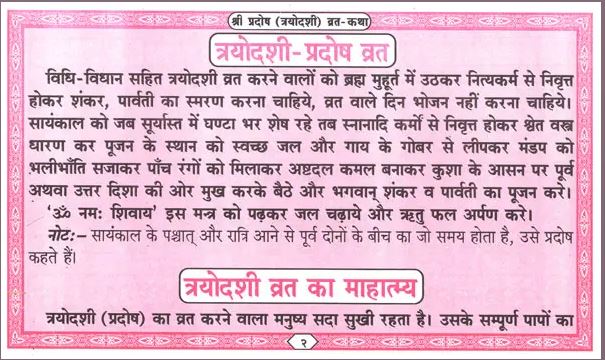 श्री प्रदोष (त्रयोदशी) व्रत-कथा
त्रयोदशी-प्रदोष व्रत
विधि-विधान सहित त्रयोदशी व्रत करने वालों को ब्रह्म मुहूर्त में उठकर नित्यकर्म से निवृत्त
होकर शंकर, पार्वती का स्मरण करना चाहिये, व्रत वाले दिन भोजन नहीं करना चाहिये।
सायंकाल को जब सूर्यास्त में घण्टा भर शेष रहे तब स्नानादि कर्मों से निवृत्त होकर श्वेत वस्त्र
धारण कर पूजन के स्थान को स्वच्छ जल और गाय के गोबर से लीपकर मंडप को
भलीभाँति सजाकर पाँच रंगों को मिलाकर अष्टदल कमल बनाकर कुशा के आसन पर पूर्व
अथवा उत्तर दिशा की ओर मुख करके बैठे और भगवान् शंकर व पार्वती का पूजन करे।
‘ॐ नमः शिवाय’ इस मन्त्र को पढ़कर जल चढ़ाये और ऋतु फल अर्पण करे।
नोटः- सायंकाल के पश्चात् और रात्रि आने से पूर्व दोनों के बीच का जो समय होता है, उसे प्रदोष
कहते हैं।
त्रयोदशी व्रत का माहात्म्य
त्रयोदशी (प्रदोष) का व्रत करने वाला मनुष्य सदा सुखी रहता है। उसके सम्पूर्ण पापों का
२